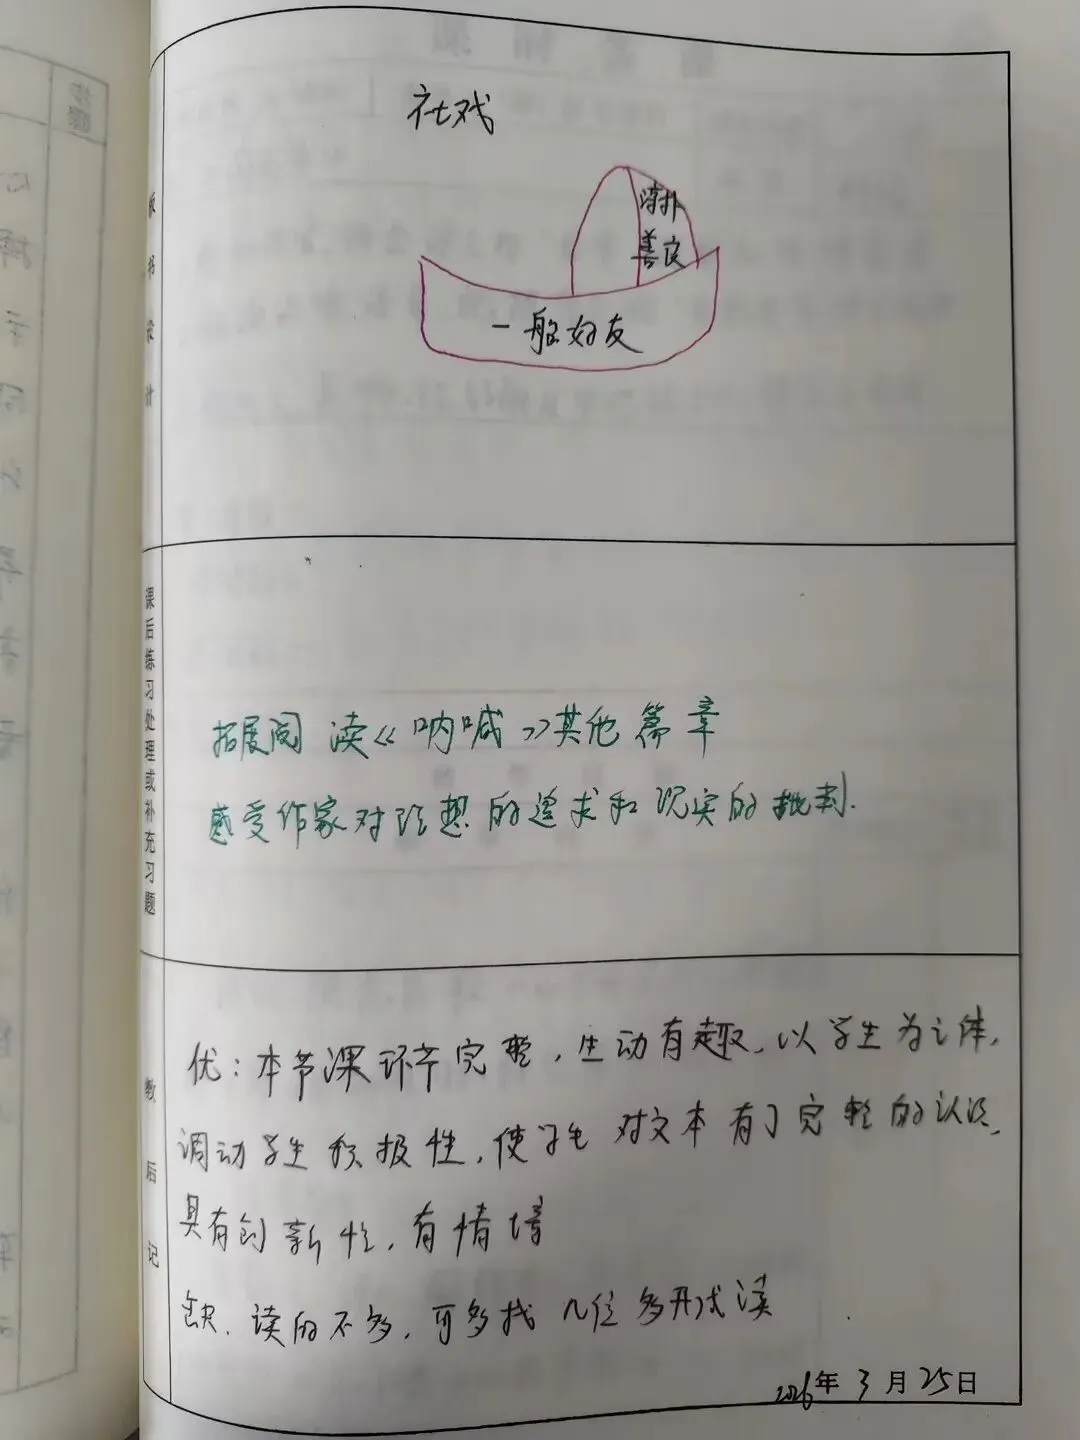 板书设计
社戏
淳朴
善良
一船好友
课后练习处理或补充习题
拓展阅读《呐喊》其他篇章
感受作家对理想的追求和现实的批判.
教后记
优：本节课环节完整，生动有趣，以学生为主体，
调动学生积极性，使学生对文本有了完整的认识，
具有创新性，有情境
缺、读的不多，可多找几位多形式读
2026年3月25日